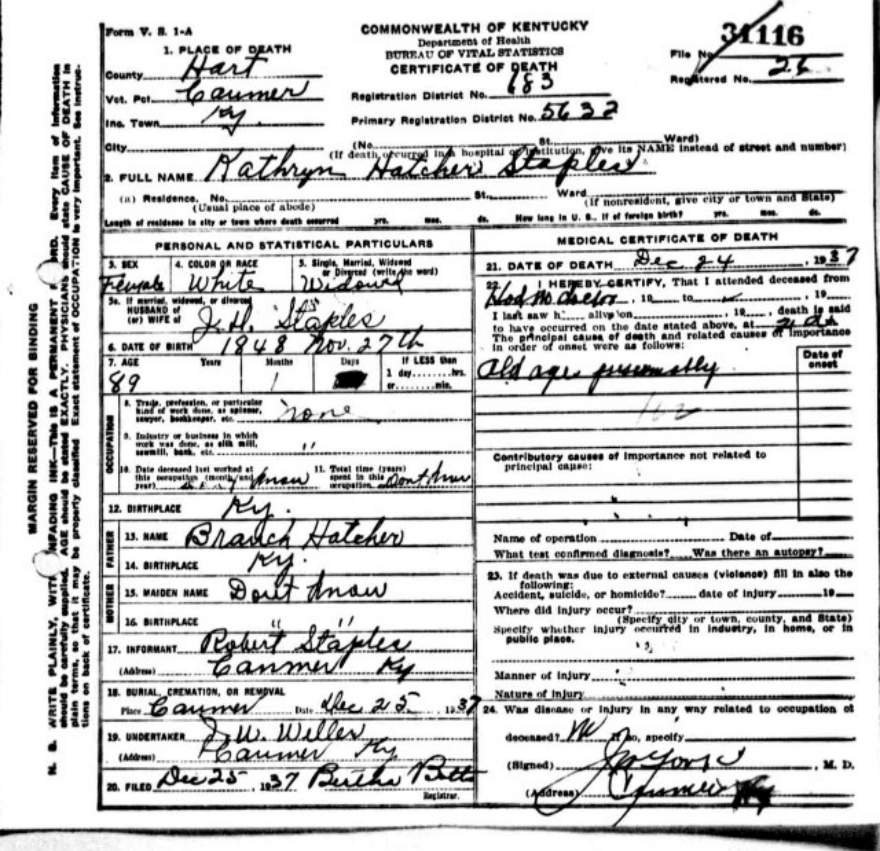 Form V. S. 1-A
COMMONWEALTH OF KENTUCKY
Department of Health
BUREAU OF VITAL STATISTICS
CERTIFICATE OF DEATH
31116
File No.
Registered No. 26
1. PLACE OF DEATH
County Hart
Vot. Pct. Canmer
Inc. Town Ky.
City
Registration District No. 683
Primary Registration District No. 5632
(No. St. Ward)
(If death occurred in a hospital or institution, give its NAME instead of street and number)
2. FULL NAME Kathryn Hatcher Staples
(a) Residence, No. St., Ward
(Usual place of abode) (If nonresident, give city or town and State)
Length of residence in city or town where death occurred yrs. mos. ds. How long in U. S., if of foreign birth? yrs. mos. ds.
PERSONAL AND STATISTICAL PARTICULARS
3. SEX Female
4. COLOR OR RACE White
5. Single, Married, Widowed or Divorced (write the word) Widowed
5a. If married, widowed, or divorced
HUSBAND of
(or) WIFE of J. H. Staples
6. DATE OF BIRTH 1848 Nov. 27th
7. AGE Years Months Days If LESS than
1 day hrs.
or min.
89 1
OCCUPATION
8. Trade, profession, or particular
kind of work done, as spinner,
sawyer, bookkeeper, etc. none
9. Industry or business in which
work was done, as silk mill,
sawmill, bank, etc. "
10. Date deceased last worked at
this occupation (month and
year) know
11. Total time (years)
spent in this
occupation Dont know
12. BIRTHPLACE Ky.
FATHER
13. NAME Branch Hatcher
14. BIRTHPLACE Ky.
MOTHER
15. MAIDEN NAME Dont know
16. BIRTHPLACE " "
17. INFORMANT Robert Staples
(Address) Canmer Ky
18. BURIAL, CREMATION, OR REMOVAL
Place Canmer Date Dec 25 1937
19. UNDERTAKER J. W. Willer
(Address) Canmer Ky
20. FILED Dec 25, 1937 Bertha Botts
Registrar.
MEDICAL CERTIFICATE OF DEATH
21. DATE OF DEATH Dec 24, 1937
22. I HEREBY CERTIFY, That I attended deceased from
Had no doctor, 19 to , 19
I last saw h alive on , 19 , death is said
to have occurred on the date stated above, at
The principal cause of death and related causes of importance
in order of onset were as follows:
Date of
onset
Old age presumably
162
Contributory causes of importance not related to
principal cause:
Name of operation Date of
What test confirmed diagnosis? Was there an autopsy?
23. If death was due to external causes (violence) fill in also the
following:
Accident, suicide, or homicide? date of injury 19
Where did injury occur?
(Specify city or town, county, and State)
Specify whether injury occurred in industry, in home, or in
public place.
Manner of injury
Nature of injury
24. Was disease or injury in any way related to occupation of
deceased? No If so, specify
(Signed) , M. D.
(Address) Canmer Ky
MARGIN RESERVED FOR BINDING
N. B. WRITE PLAINLY, WITH UNFADING INK—This is A PERMANENT RECORD. Every item of information
should be carefully supplied. AGE should be stated EXACTLY. PHYSICIANS should state CAUSE OF DEATH in
plain terms, so that it may be properly classified. Exact statement of OCCUPATION is very important. See instruc-
tions on back of certificate.